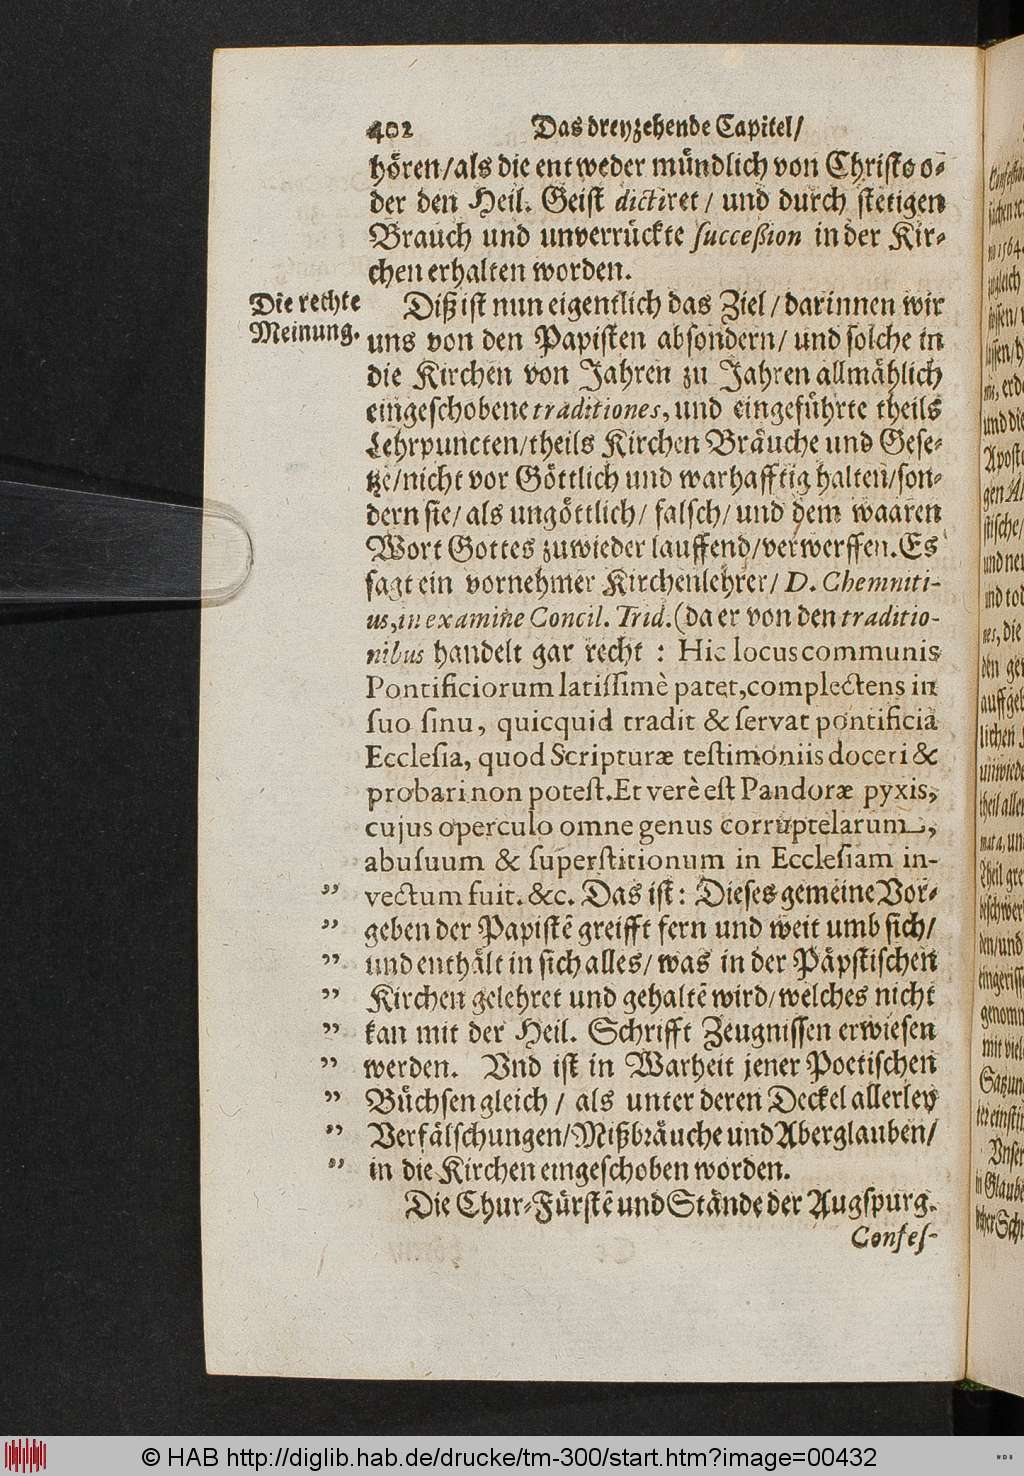 402 Das dreyzehende Capitel/
hören/als die entweder mündlich von Christo o-
der den Heil. Geist dictiret/ und durch stetigen
Brauch und unverrückte succeßion in der Kir-
chen erhalten worden.
Die rechte
Meinung.
Diß ist nun eigentlich das Ziel/darinnen wir
uns von den Papisten absondern/ und solche in
die Kirchen von Jahren zu Jahren allmählich
eingeschobene traditiones, und eingeführte theils
Lehrpuncten/theils Kirchen Bräuche und Gese-
tze/nicht vor Göttlich und warhafftig halten/son-
dern sie/ als ungöttlich/ falsch/ und dem waaren
Wort Gottes zuwieder lauffend/verwerffen. Es
sagt ein vornehmer Kirchenlehrer/ D. Chemniti-
us, in examine Concil. Trid. (da er von den traditio-
nibus handelt gar recht : Hic locus communis
Pontificiorum latissimè patet, complectens in
suo sinu, quicquid tradit & servat pontificia
Ecclesia, quod Scripturæ testimoniis doceri &
probari non potest. Et verè est Pandoræ pyxis,
cujus operculo omne genus corruptelarum,
abusuum & superstitionum in Ecclesiam in-
„ vectum fuit. &c. Das ist: Dieses gemeine Vor-
„ geben der Papistẽ greifft fern und weit umb sich/
„ und enthält in sich alles/ was in der Päpstischen
„ Kirchen gelehret und gehaltẽ wird/welches nicht
„ kan mit der Heil. Schrifft Zeugnissen erwiesen
„ werden. Vnd ist in Warheit jener Poetischen
„ Büchsen gleich/ als unter deren Deckel allerley
„ Verfälschungen/Mißbräuche und Aberglauben/
„ in die Kirchen eingeschoben worden.
Die Chur-Fürstẽ und Stände der Augspurg.
Confes-
© HAB http://diglib.hab.de/drucke/tm-300/start.htm?image=00432